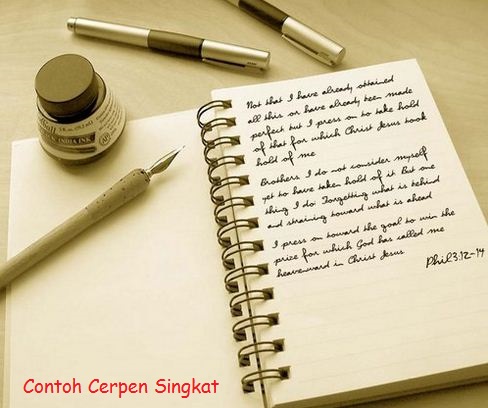 Not that I have already obtained
all this or have already been made
perfect but I press on to take hold
of that for which Christ Jesus took
hold of me
Brothers I do not consider myself
yet to have taken hold of it But one
thing I do: Forgetting what is behind
and straining toward what is ahead
I press on toward the goal to win the
prize for which God has called me
heavenward in Christ Jesus
Phil.3:12-14
INDIA INK
Contoh Cerpen Singkat